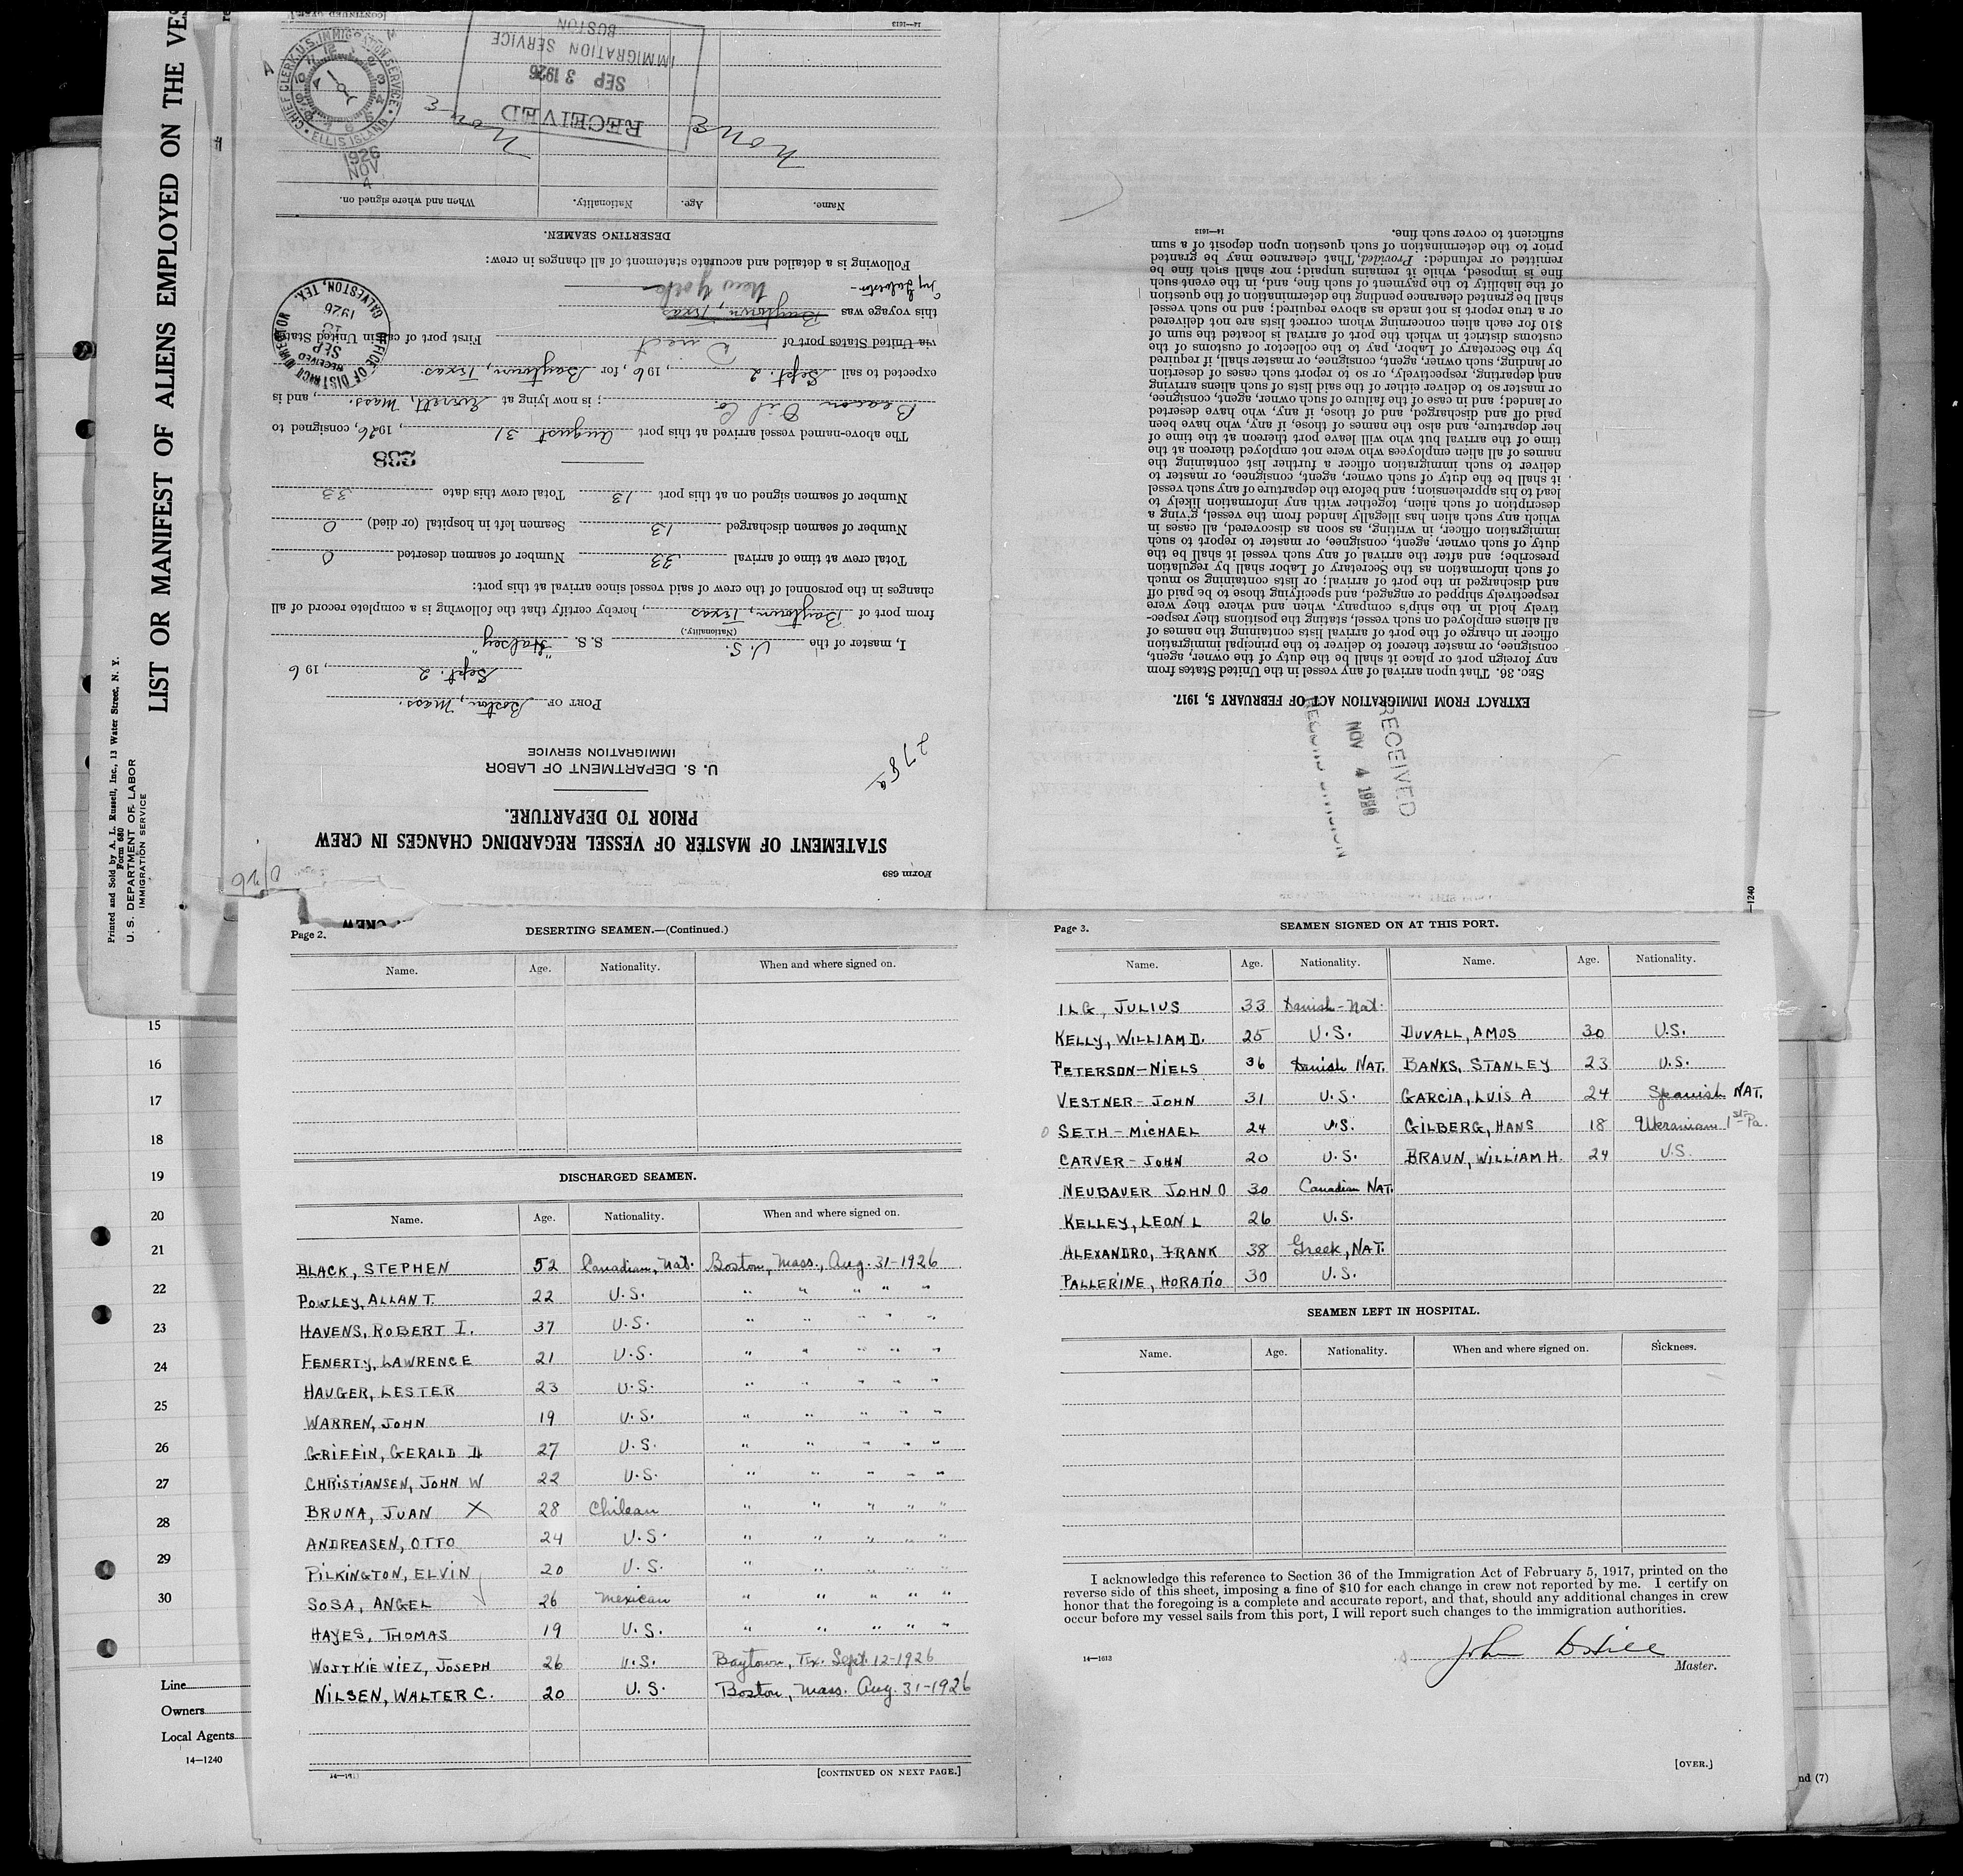 LIST OR MANIFEST OF ALIENS EMPLOYED ON THE VES
Printed and Sold by A. L. Russell, Inc., 13 Water Street, N. Y.
Form 680
U. S. DEPARTMENT OF LABOR
IMMIGRATION SERVICE
Form 689
STATEMENT OF MASTER OF VESSEL REGARDING CHANGES IN CREW
PRIOR TO DEPARTURE.
U. S. DEPARTMENT OF LABOR
IMMIGRATION SERVICE
278a
PORT OF Boston, Mass.
Sept. 2, 1926
I, master of the U.S. S. S. "Halsey"
(Nationality.)
from port of Baytown, Texas, hereby certify that the following is a complete record of all
changes in the personnel of the crew of said vessel since arrival at this port:
Total crew at time of arrival 33 Number of seamen deserted 0
Number of seamen discharged 13 Seamen left in hospital (or died) 0
Number of seamen signed on at this port 13 Total crew this date 33
238
The above-named vessel arrived at this port August 31, 1926, consigned to
Beacon Oil Co; is now lying at Everett, Mass., and is
expected to sail Sept. 2, 196, for Baytown, Texas.
via United States port of Direct First port of call in United States
this voyage was Baytown, Texas
New York
Following is a detailed and accurate statement of all changes in crew:
DESERTING SEAMEN.
Name. Age. Nationality. When and where signed on.
None None
RECEIVED
SEP 3 1926
IMMIGRATION SERVICE
BOSTON
CHIEF CLERK, U.S. IMMIGRATION SERVICE
ELLIS ISLAND
1926
NOV
4
OFFICE OF DISTRICT DIRECTOR
RECEIVED
SEP
13
1926
GALVESTON, TEX.
[CONTINUED OVER.]
14—1613
EXTRACT FROM IMMIGRATION ACT OF FEBRUARY 5, 1917.
SEC. 36. That upon arrival of any vessel in the United States from
any foreign port or place it shall be the duty of the owner, agent,
consignee, or master thereof to deliver to the principal immigration
officer in charge of the port of arrival lists containing the names of
all aliens employed on such vessel, stating the positions they respec-
tively hold in the ship's company, when and where they were
respectively shipped or engaged, and specifying those to be paid off
and discharged in the port of arrival; or lists containing so much
of such information as the Secretary of Labor shall by regulation
prescribe; and after the arrival of any such vessel it shall be the
duty of such owner, agent, consignee, or master to report to such
immigration officer, in writing, as soon as discovered, all cases in
which any such alien has illegally landed from the vessel, giving a
description of such alien, together with any information likely to
lead to his apprehension; and before the departure of any such vessel
it shall be the duty of such owner, agent, consignee, or master to
deliver to such immigration officer a further list containing the
names of all alien employees who were not employed thereon at the
time of the arrival but who will leave port thereon at the time of
her departure, and also the names of those, if any, who have been
paid off and discharged, and of those, if any, who have deserted
or landed; and in case of the failure of such owner, agent, consignee,
or master so to deliver either of the said lists of such aliens arriving
and departing, respectively, or so to report such cases of desertion
or landing, such owner, agent, consignee, or master, shall, if required
by the Secretary of Labor, pay to the collector of customs of the
customs district in which the port of arrival is located the sum of
$10 for each alien concerning whom correct lists are not delivered
or a true report is not made as above required; and no such vessel
shall be granted clearance pending the determination of the question
of the liability to the payment of such fine, and, in the event such
fine is imposed, while it remains unpaid; nor shall such fine be
remitted or refunded: Provided, That clearance may be granted
prior to the determination of such question upon deposit of a sum
sufficient to cover such fine.
14—1613
RECEIVED
NOV 4 1926
Page 2.
DESERTING SEAMEN.—(Continued.)
Name. Age. Nationality. When and where signed on.
DISCHARGED SEAMEN.
Name. Age. Nationality. When and where signed on.
BLACK, STEPHEN 52 Canadian, Nat. Boston, Mass., Aug. 31-1926
POWLEY, ALLAN T. 22 U.S. " " " " "
HAVENS, ROBERT I. 37 U.S. " " " " "
FENERTY, LAWRENCE 21 U.S. " " " " "
HAUGER, LESTER 23 U.S. " " " " "
WARREN, JOHN 19 U.S. " " " " "
GRIFFIN, GERALD D 27 U.S. " " " " "
CHRISTIANSEN, JOHN W 22 U.S. " " " " "
BRUNA, JUAN X 28 Chilean " " " " "
ANDREASEN, OTTO 24 U.S. " " " " "
PILKINGTON, ELVIN 20 U.S. " " " " "
SOSA, ANGEL 26 Mexican " " " " "
HAYES, THOMAS 19 U.S. " " " " "
WOJTKIEWIEZ, JOSEPH 26 U.S. Baytown, Tx. Sept. 12-1926
NILSEN, WALTER C. 20 U.S. Boston, Mass. Aug. 31-1926
[CONTINUED ON NEXT PAGE.]
Page 3.
SEAMEN SIGNED ON AT THIS PORT.
Name. Age. Nationality. Name. Age. Nationality.
ILG, JULIUS 33 Danish-Nat.
KELLY, WILLIAM D. 25 U.S. DUVALL, AMOS 30 U.S.
PETERSON-NIELS 36 Danish NAT. BANKS, STANLEY 23 U.S.
VESTNER-JOHN 31 U.S. GARCIA, LUIS A 24 Spanish NAT.
SETH-MICHAEL 24 U.S. GILBERG, HANS 18 Ukranian 1st Pa.
CARVER-JOHN 20 U.S. BRAUN, WILLIAM H. 24 U.S.
NEUBAUER JOHN O 30 Canadian NAT.
KELLEY, LEON L 26 U.S.
ALEXANDRO, FRANK 38 Greek, NAT.
PALLERINE, HORATIO 30 U.S.
SEAMEN LEFT IN HOSPITAL.
Name. Age. Nationality. When and where signed on. Sickness.
I acknowledge this reference to Section 36 of the Immigration Act of February 5, 1917, printed on the
reverse side of this sheet, imposing a fine of $10 for each change in crew not reported by me. I certify on
honor that the foregoing is a complete and accurate report, and that, should any additional changes in crew
occur before my vessel sails from this port, I will report such changes to the immigration authorities.
John
Master.
14—1613
[OVER.]
15
16
17
18
19
20
21
22
23
24
25
26
27
28
29
30
Line
Owners
Local Agents
14—1240
nd (7)